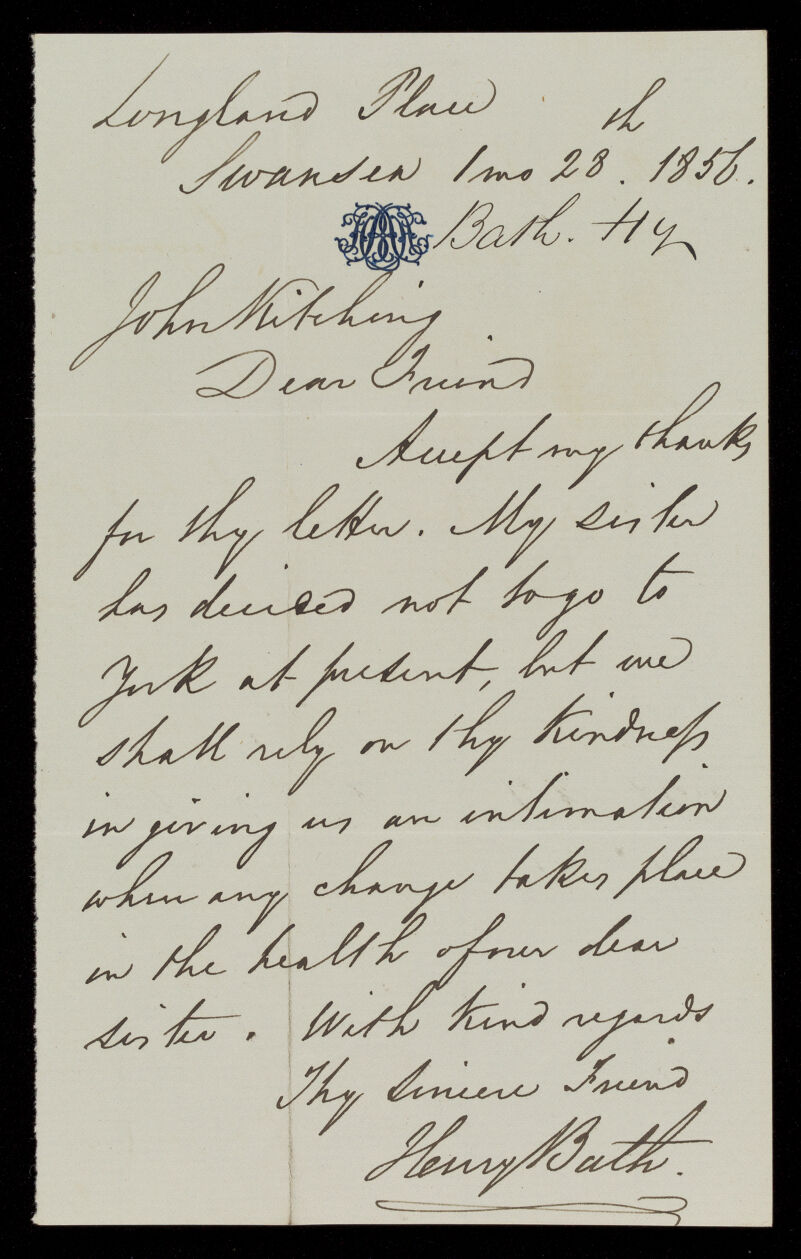 Longland Place
Swansea 1 mo 28th. 1856.
Bath. Hy
John Kitching
Dear Friend
Accept my thanks
for thy letter. My sister
has decided not to go to
York at present, but we
shall rely on thy kindness
in giving us an intimation
when any change takes place
in the health of our dear
sister. With kind regards
Thy sincere Friend
Henry Bath.